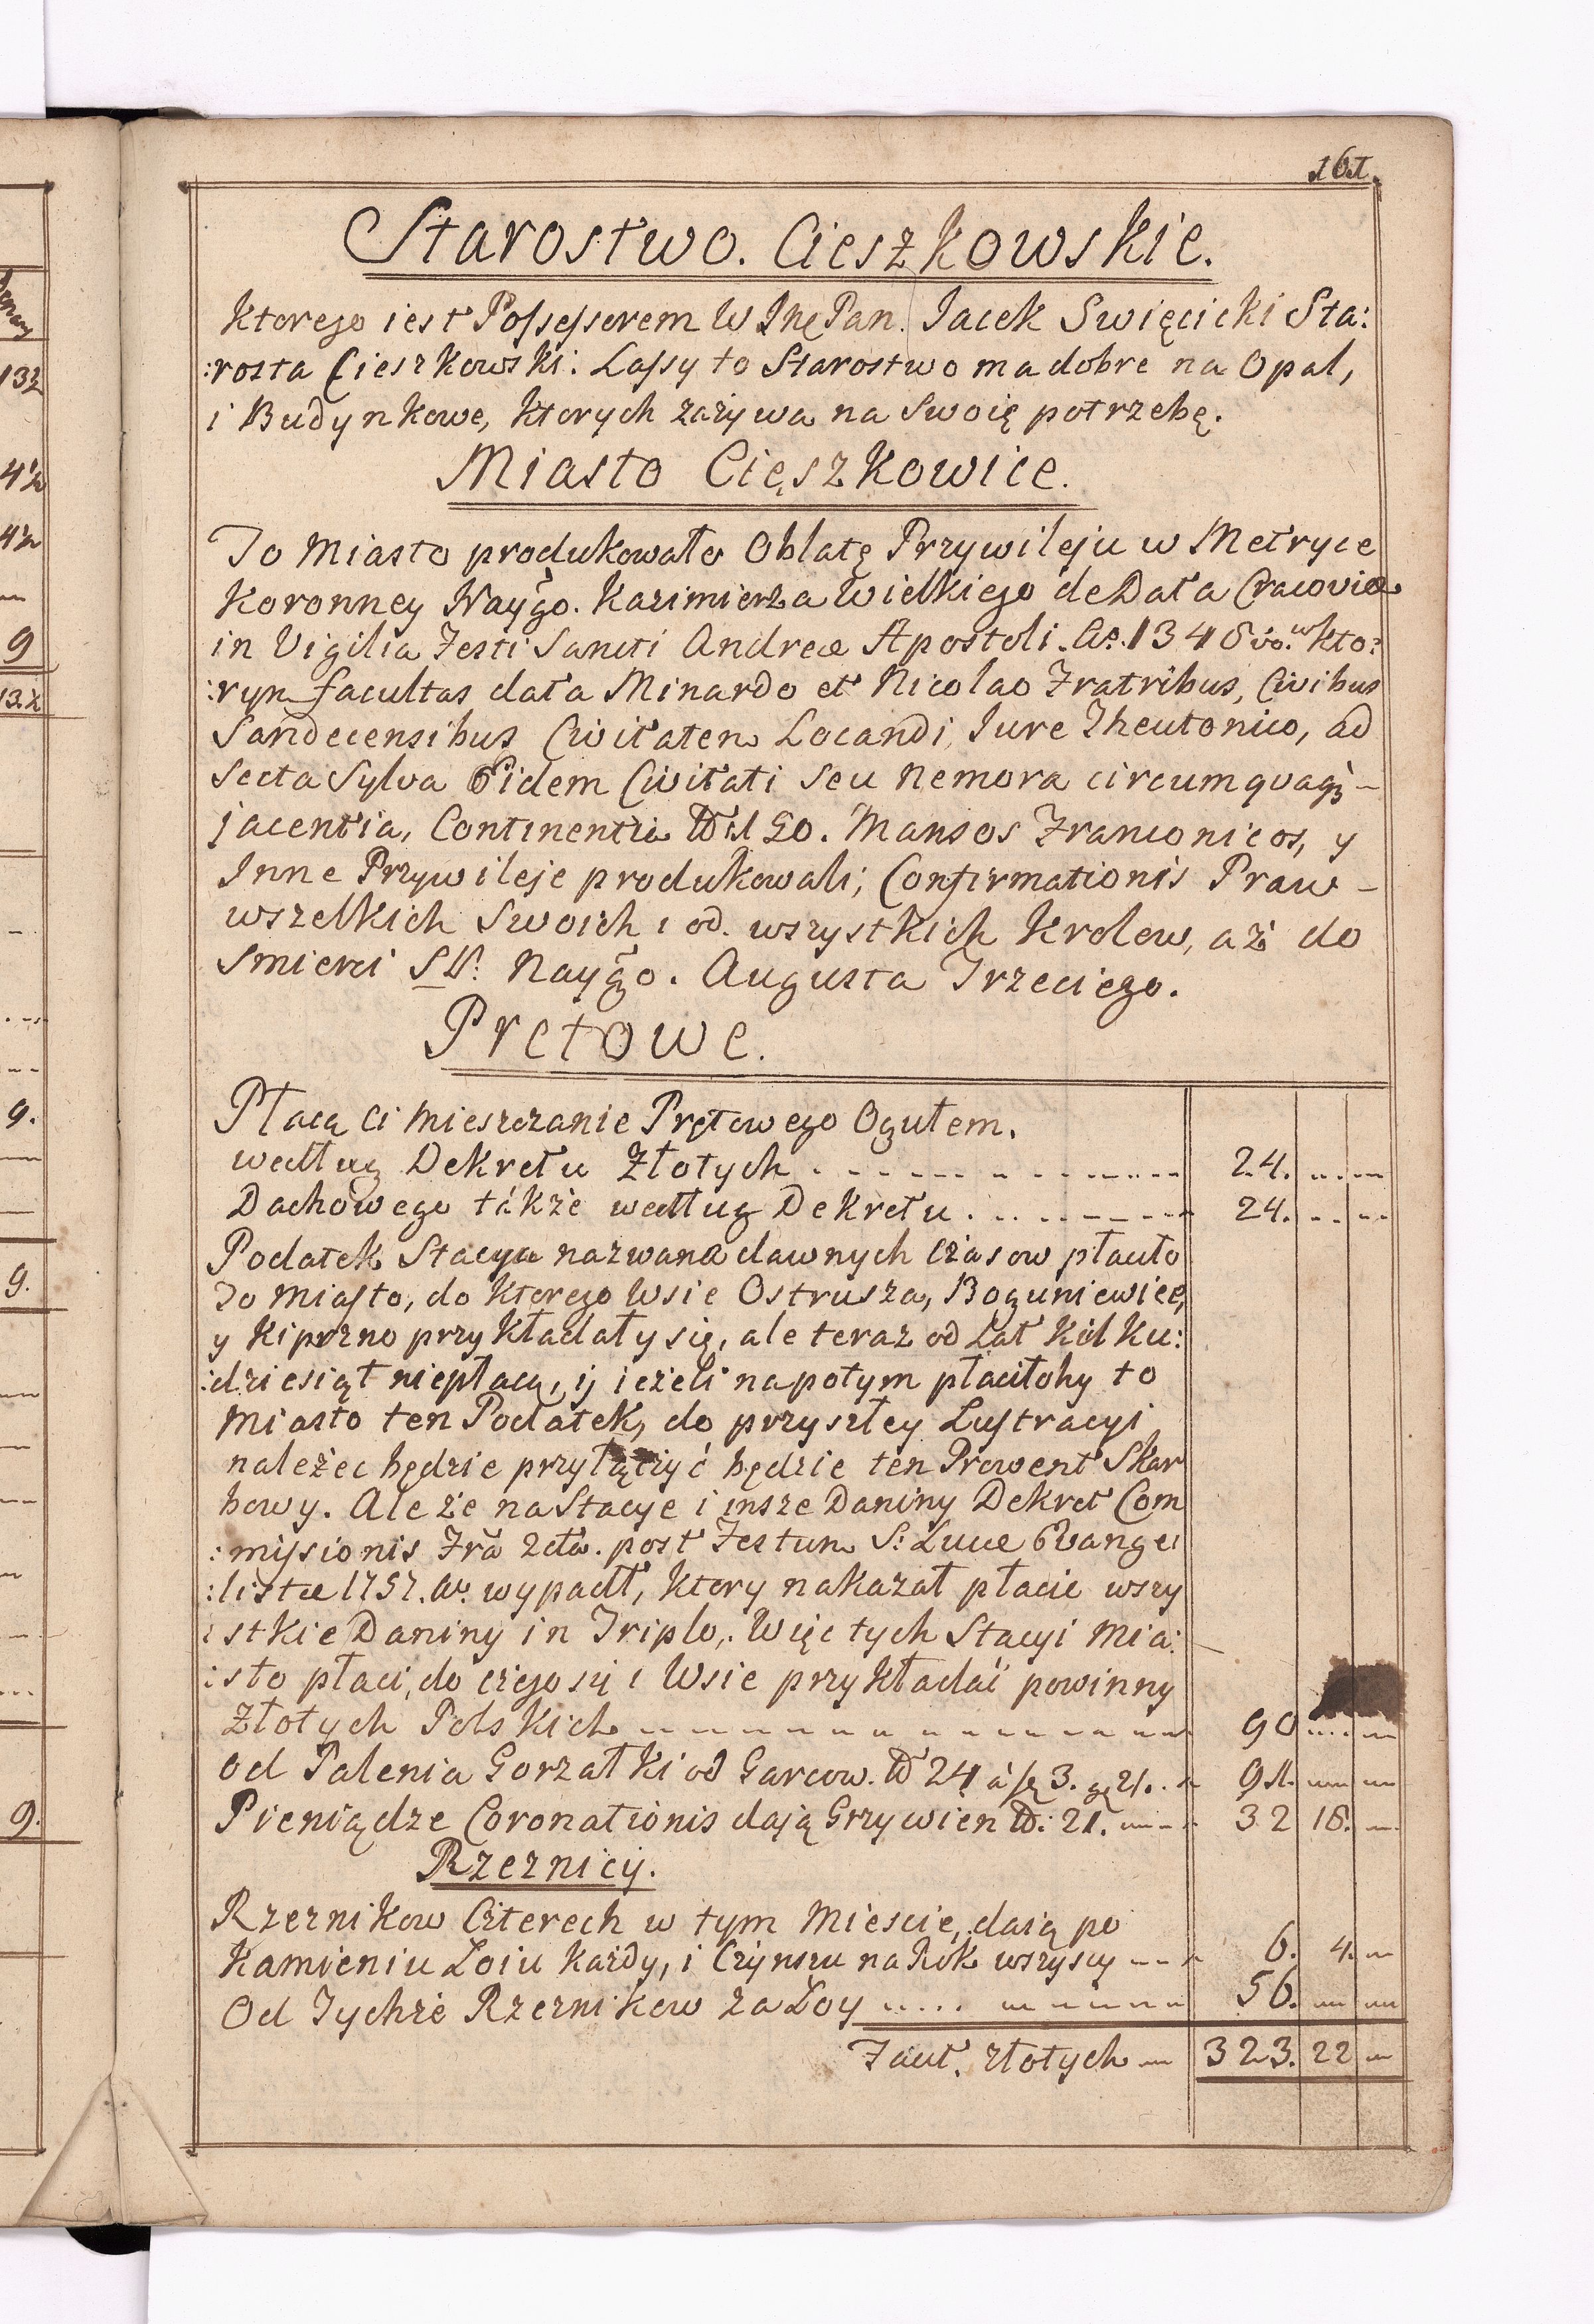 161.
Starostwo. Cieszkowskie.
Ktorego iest Possessorem W Pan. Jacek Swięcicki Sta:
:rosta Cieszkowski: Lassy to Starostwo ma dobre na Opał,
i Budynkowe, ktorych zażywa na swoię potrzebę.
Miasto Cięszkowice.
To Miasto produkowało Oblatę Przywileju w Metryce
Koronney Nayśgo. Kazimierza Wielkiego de Data Cracoviæ
in Vigilia Festi Sancti Andreæ Apostoli. Ao. 1348vo. w kto:
:rym facultas data Minardo et Nicolao Fratribus, Civibus
Sandecensibus Civitatem Locandi Iure Theutonico, ad
Secta Sylva Eidem Civitati seu Nemora circumquaq3 -
jacentia, Continentia 150. Mansos Franconicos, y
Inne Przywileje produkowali; Confirmationis Praw -
wszelkich Swoich i od. wszystkich Krolow, aż do
Smierci SP: Nayśgo. Augusta Trzeciego.
Prętowe.
Płacą ci Mieszczanie Prętowego Ogułem.
według Dekretu Złotych . - - - - - - - - 24. - -
Dachowego także według Dekretu . - - - - - 24. - -
Podatek Stacya nazwana dawnych czasow płaciło
To Miasto, do ktorego Wsie Ostrusza, Boguniewice,
y Kiprzno przykładały się, ale teraz od Lat Kilku:
:dziesiąt niepłacą, ij ieżeli napotym płaciłoby to
Miasto ten Podatek, do przyszłey Lustracyi
należec będzie przyłączyć będzie ten Prowent Skar
bowy. Ale że na Stacye i insze Daniny Dekret Com
:missionis Fra 2da. post Festum S: Lucæ Evange:
:listæ 1757. Ao. wypadł, ktory nakazał płacic wszy
:stkie Daniny in Triplo, Więc tych Stacyi Mia:
:sto płaci, do czego się i Wsie przykładać powinny
Złotych Polskich - - - - - - - - - - - - 90 - -
od Palenia Gorzałki od Garcow. 24 à 3. 21. - 91. - -
Pieniądze Coronationis dają Grzywien 21. - - - 32 18. -
Rzeznicy.
Rzeznikow Czterech w tym Miescie, daią po
Kamieniu Łoiu każdy, i Czynszu na Rok wszyscy - - 6. 4. -
Od Tychże Rzeznikow za Łoy - - - - - - - - 56. - -
Facit. złotych - 323. 22 -